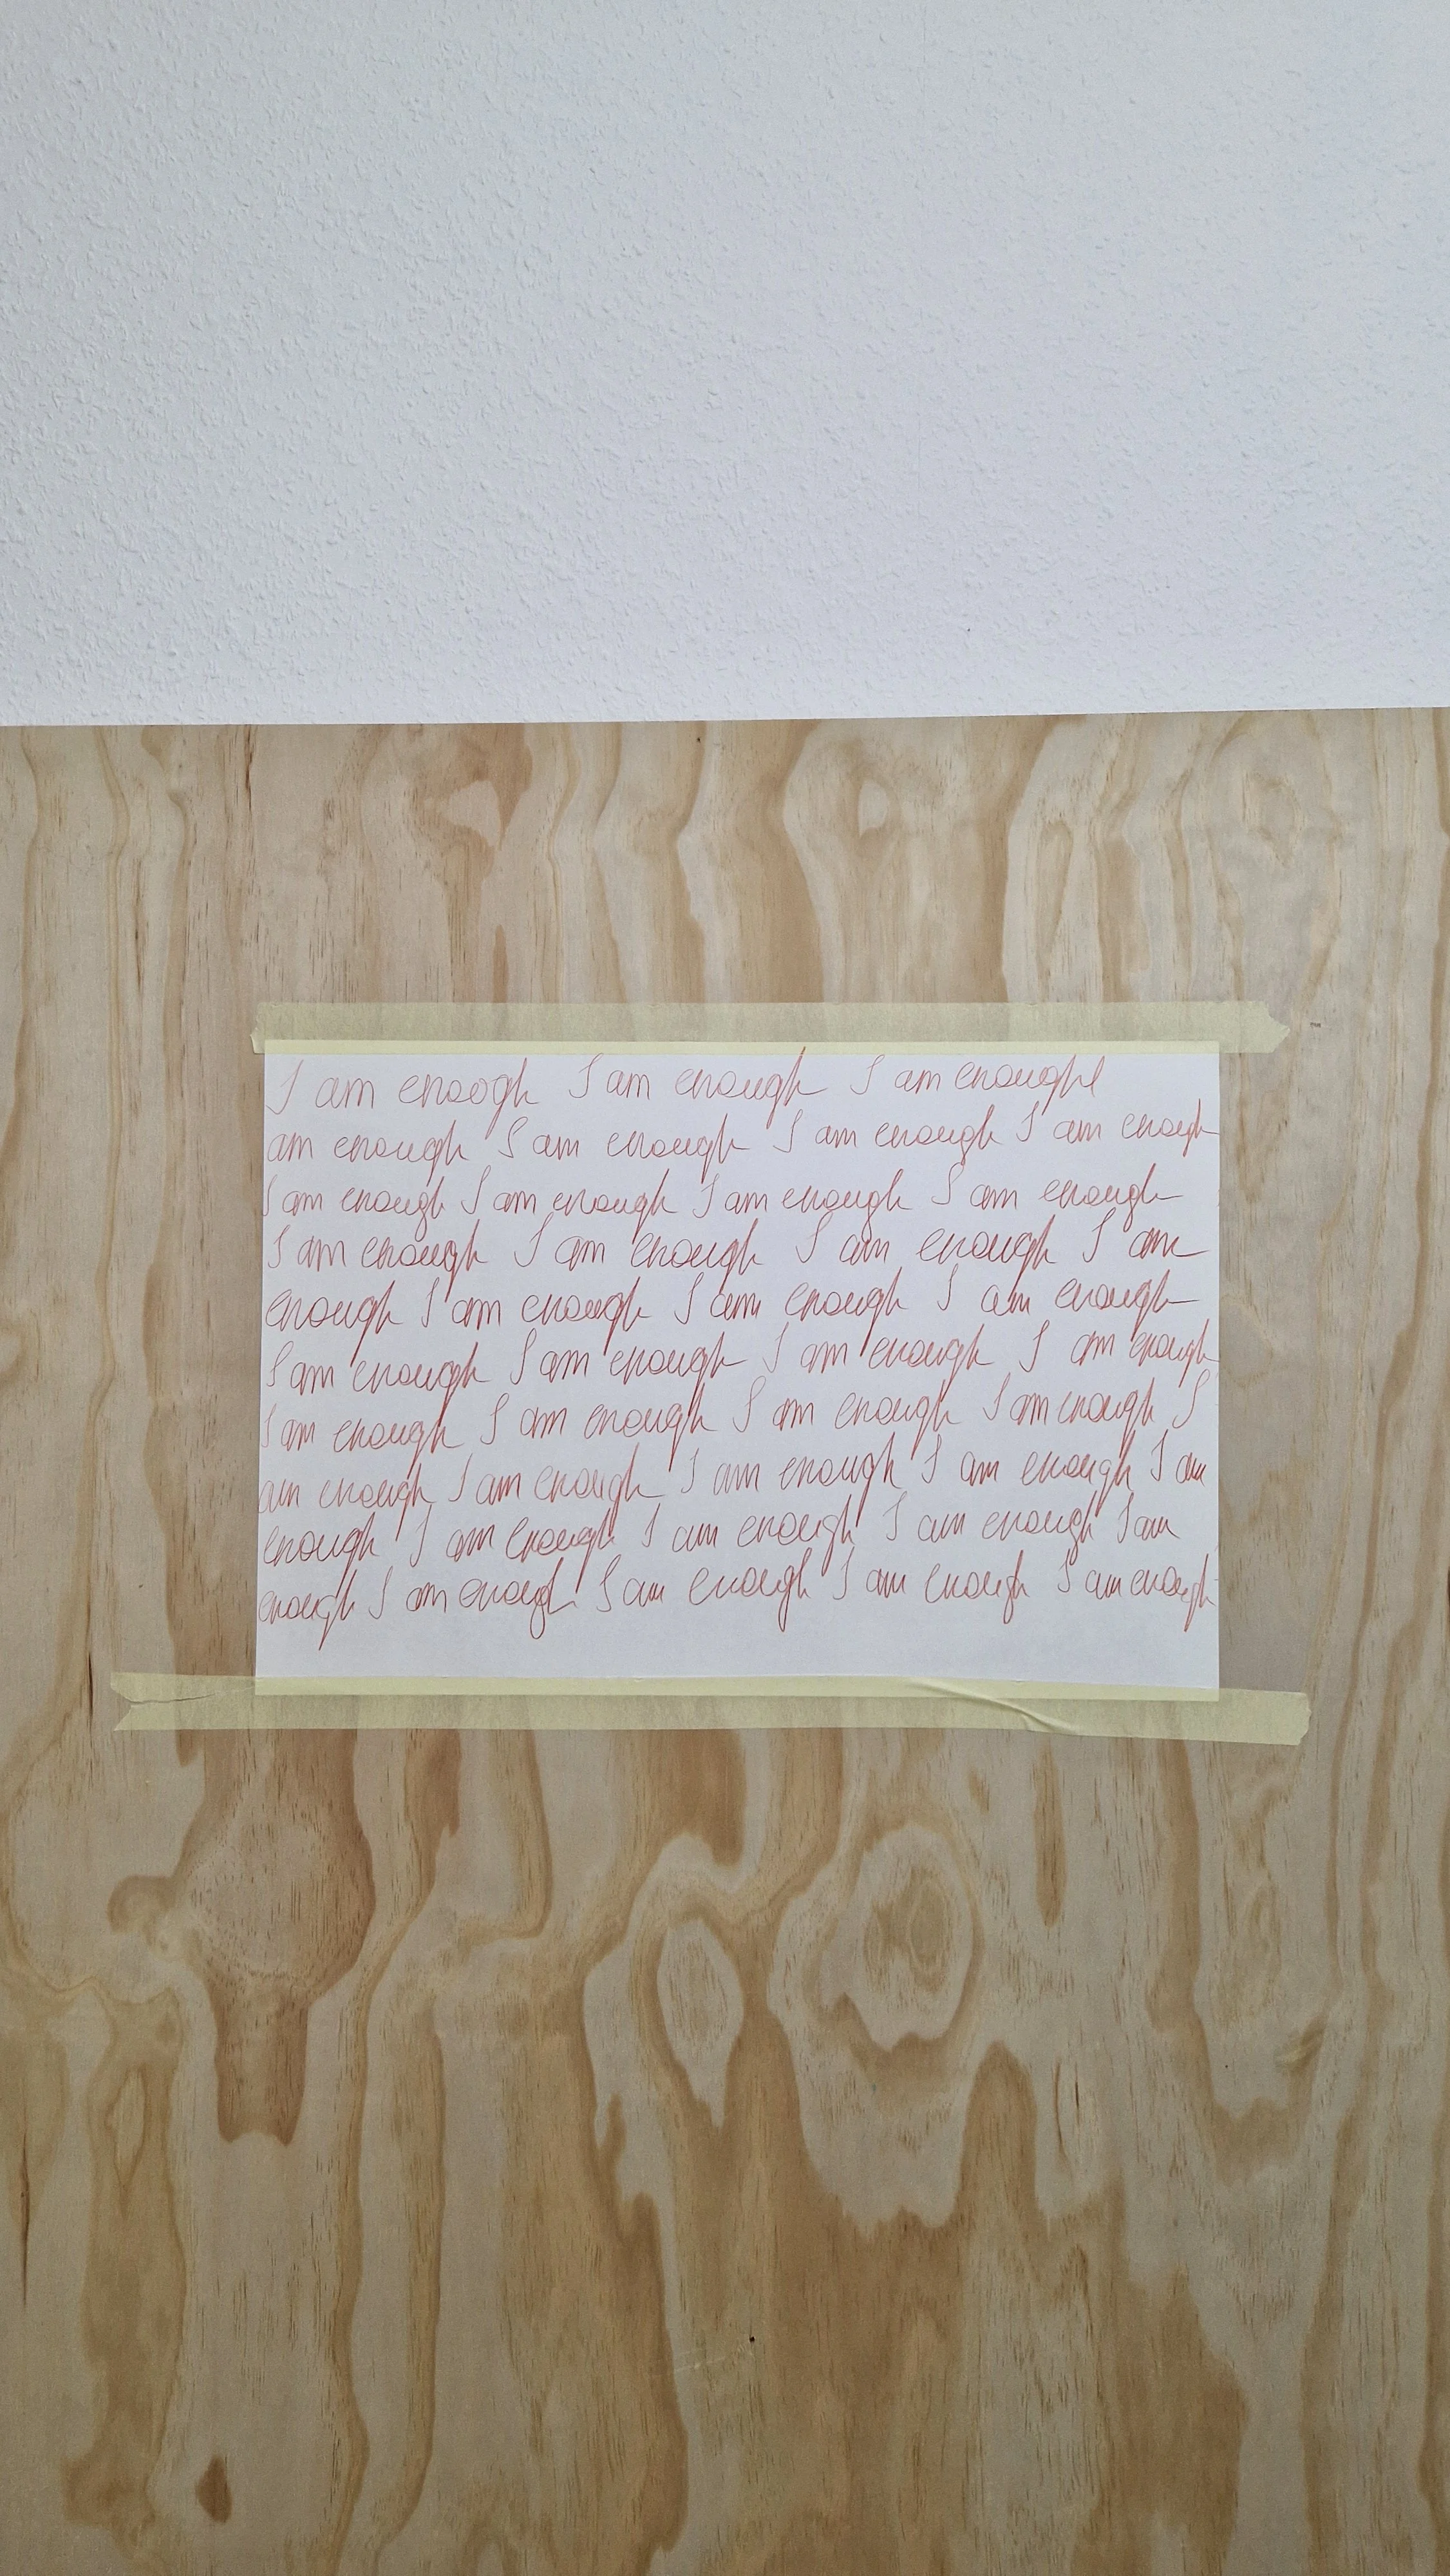 I am enough I am enough I am enough I
am enough I am enough I am enough I am enough
I am enough I am enough I am enough I am enough
I am enough I am enough I am enough I am
enough I am enough I am enough I am enough
I am enough I am enough I am enough I am enough
I am enough I am enough I am enough I am enough I
am enough I am enough I am enough I am enough I am
enough I am enough I am enough I am enough I am
enough I am enough I am enough I am enough I am enough